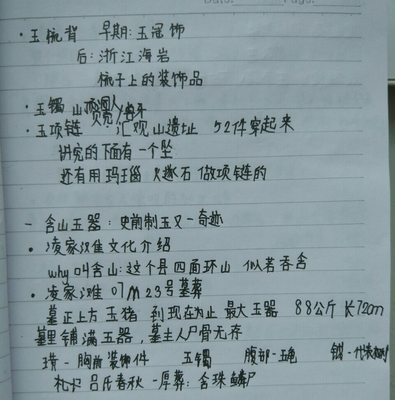 · 玉梳背 早期: 玉冠饰
后: 浙江海岩
梳子上的装饰品
· 玉镯 山顶洞人
· 玉项链 汇观山遗址 52件穿起来
讲究的下面有一个坠
还有用玛瑙 火燧石 做项链的
- 含山玉器: 史前制玉又一奇迹
· 凌家滩文化介绍
why 叫含山: 这个县四面环山 似若吞含
· 凌家滩 07M23号墓葬
墓正上方 玉猪 到现在为止 最大玉器 88公斤 长72cm
墓里铺满玉器, 墓主人尸骨无存
璜 - 胸前装饰件 玉镯 腹部 - 玉龟 钺 - 代表
吕氏春秋 - 厚葬: 含珠鳞尸